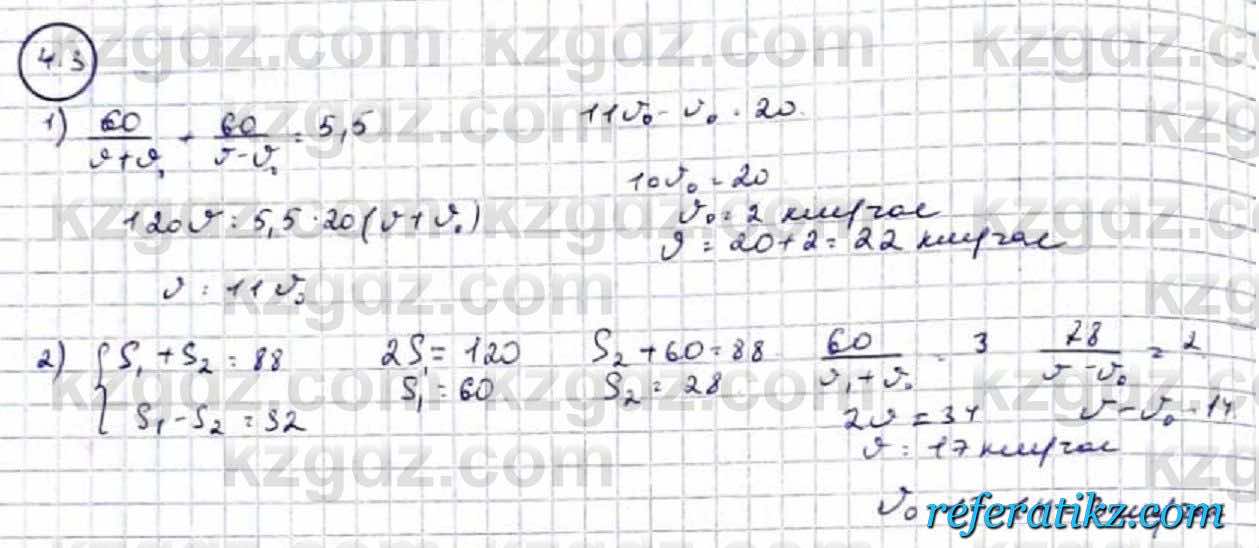 4.3
1) 60/(v+v₀) + 60/(v-v₀) = 5,5
120v = 5,5·20(v+v₀)
v = 11v₀
11v₀ - v₀ = 20.
10v₀ = 20
v₀ = 2 км/час
v = 20+2 = 22 км/час
2) { S₁ + S₂ = 88
S₁ - S₂ = 32
2S₁ = 120
S₁ = 60
S₂ + 60 = 88
S₂ = 28
60/(v₁+v₀) = 3
28/(v-v₀) = 2
2v = 34
v - v₀ = 14
v = 17 км/час
v₀
referatikz.com
kzgdz.com